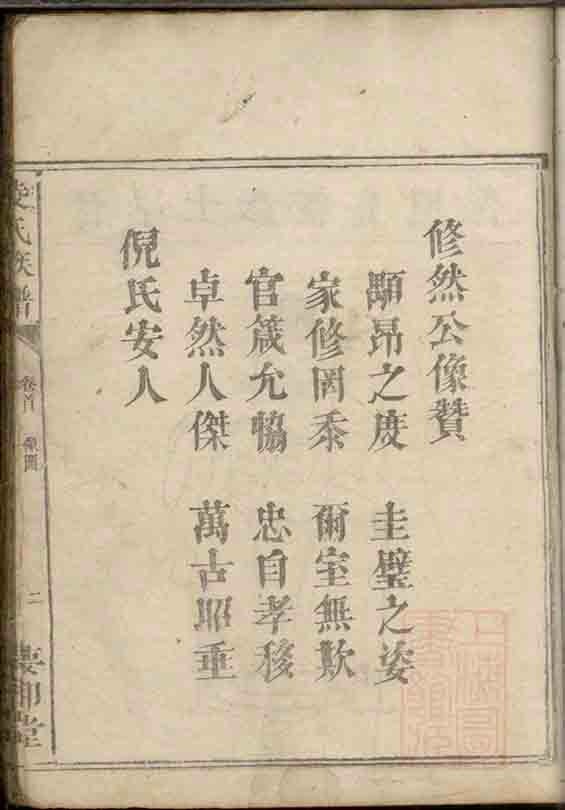 修然公像贊
顒昂之度　圭璧之姿
家修罔忝　爾室無欺
官箴允恊　忠自孝移
卓然人傑　萬古昭垂
倪氏安人
氏族譜
卷首　像圖　二
堂
上海圖書館藏